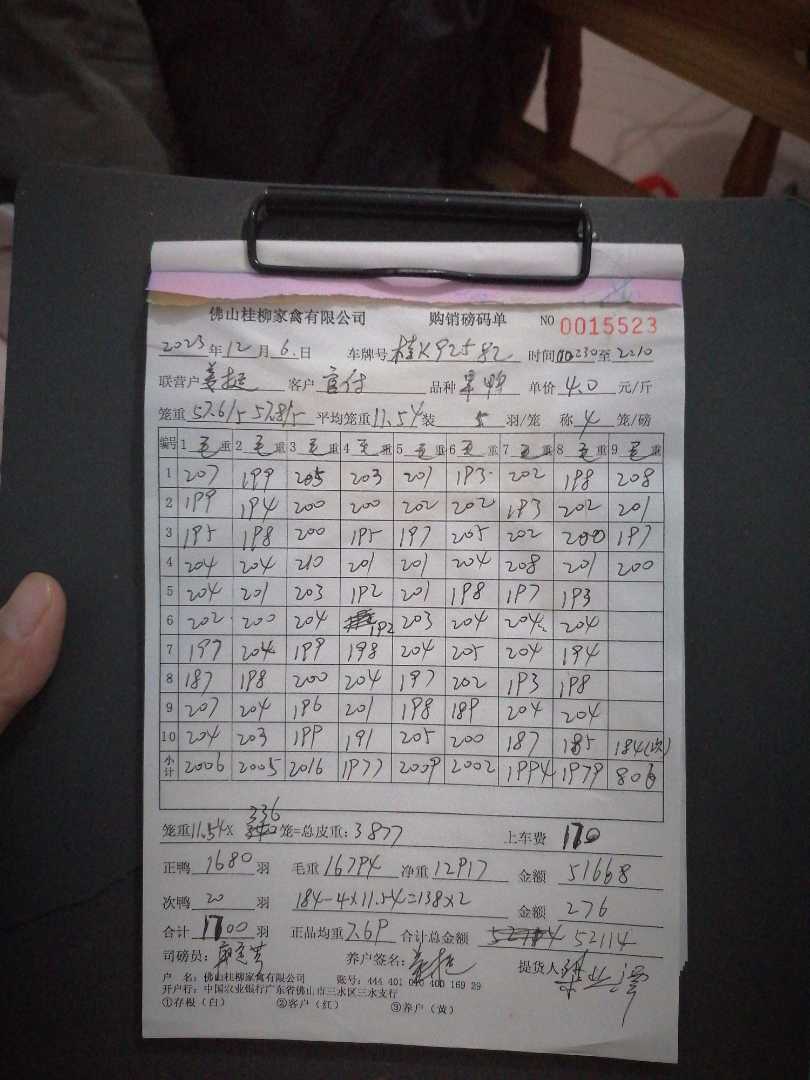 佛山桂柳家禽有限公司 购销磅码单 NO 0015523
2023年12月6日 车牌号 桂K92582 时间 230至2210
联营户 客户 官付 品种 单价 4.0 元/斤
笼重 57.6/5 57.8/5 平均笼重 11.54 装 5 羽/笼 称 4 笼/磅
编号 1 毛重 2 毛重 3 毛重 4 毛重 5 毛重 6 毛重 7 毛重 8 毛重 9 毛重
1 207 199 205 203 201 193 202 198 208
2 199 194 200 200 202 202 193 202 201
3 195 198 200 195 197 205 202 200 197
4 204 204 210 201 201 204 208 201 200
5 204 201 203 192 201 198 197 193
6 202 200 204 192 203 204 204 204
7 197 204 199 198 204 205 204 194
8 187 198 200 204 197 202 193 198
9 207 204 196 201 198 189 204 204
10 204 203 199 191 205 200 187 185 184(次)
小计 2006 2005 2016 1977 2009 2002 1994 1979 806
336
笼重 11.54× 笼=总皮重: 3877 上车费 170
正鸭 1680 羽 毛重 16794 净重 12917 金额 51668
次鸭 20 羽 184-4×11.54=138×2 金额 276
合计 1700 羽 正品均重 7.69 合计总金额 52114
司磅员: 养户签名: 提货人
户 名: 佛山桂柳家禽有限公司 账号: 444 401 040 400 169 29
开户行: 中国农业银行广东省佛山市三水区三水支行
①存根(白) ②客户(红) ③养户(黄)